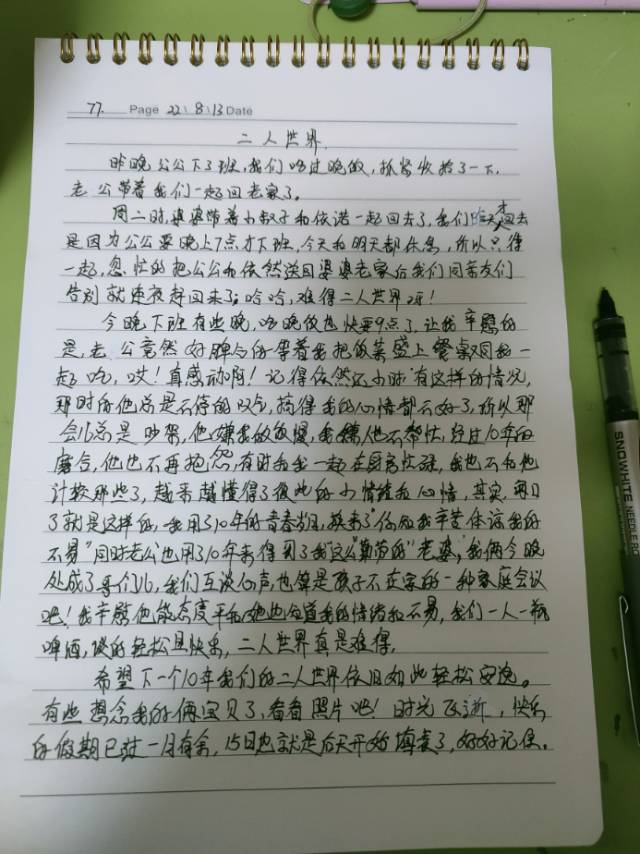 77. Page 22\ 8\13 Date
二人世界
昨晚公公下了班,我们吃过晚饭,抓紧收拾了一下,
老公带着我们一起回老家了。
周二时,婆婆带着小叔子和依诺一起回去了,我们昨天才回去
是因为公公要晚上7点才下班,今天和明天都休息,所以只得
一起,急忙的把公公和依然送回婆婆老家后我们同亲友们
告别就连夜赶回来了。哈哈,难得二人世界呀!
今晚下班有些晚,吃晚饭也快要9点了,让我欣慰的
是,老公竟然好脾气的等着我把饭菜盛上餐桌同我一
起吃,哎!真感动啊!记得依然还小时有这样的情况,
那时的他总是不停的叹气,搞得我的心情都不好了,所以那
会儿总是吵架,他嫌我做饭慢,我嫌他不帮忙,经过10年的
磨合,他也不再抱怨,有时和我一起在厨房忙碌,我也不和他
计较那些了,越来越懂得了彼此的小情绪和心情,其实,每日
了就是这样的,我用了10年的青春岁月,换来了"你做我辛苦体谅我的
不易"同时老公也用了10年来得到了我"这么算节的"老婆,我俩今晚
处成了哥们儿,我们互谈心声,也算是孩子不在家的一种家庭会议
吧!我欣慰他能态度平和,他也知道我的情绪和不易,我们一人一瓶
啤酒,谈的轻松且快乐,二人世界真是难得。
希望下一个10年我们的二人世界依旧如此轻松安逸。
有些想念我的俩宝贝了,看看照片吧!时光飞逝,快乐
的假期已过一月有余,15日也就是后天开始填表了,好好记住。
SNOWHITE NEEDLE